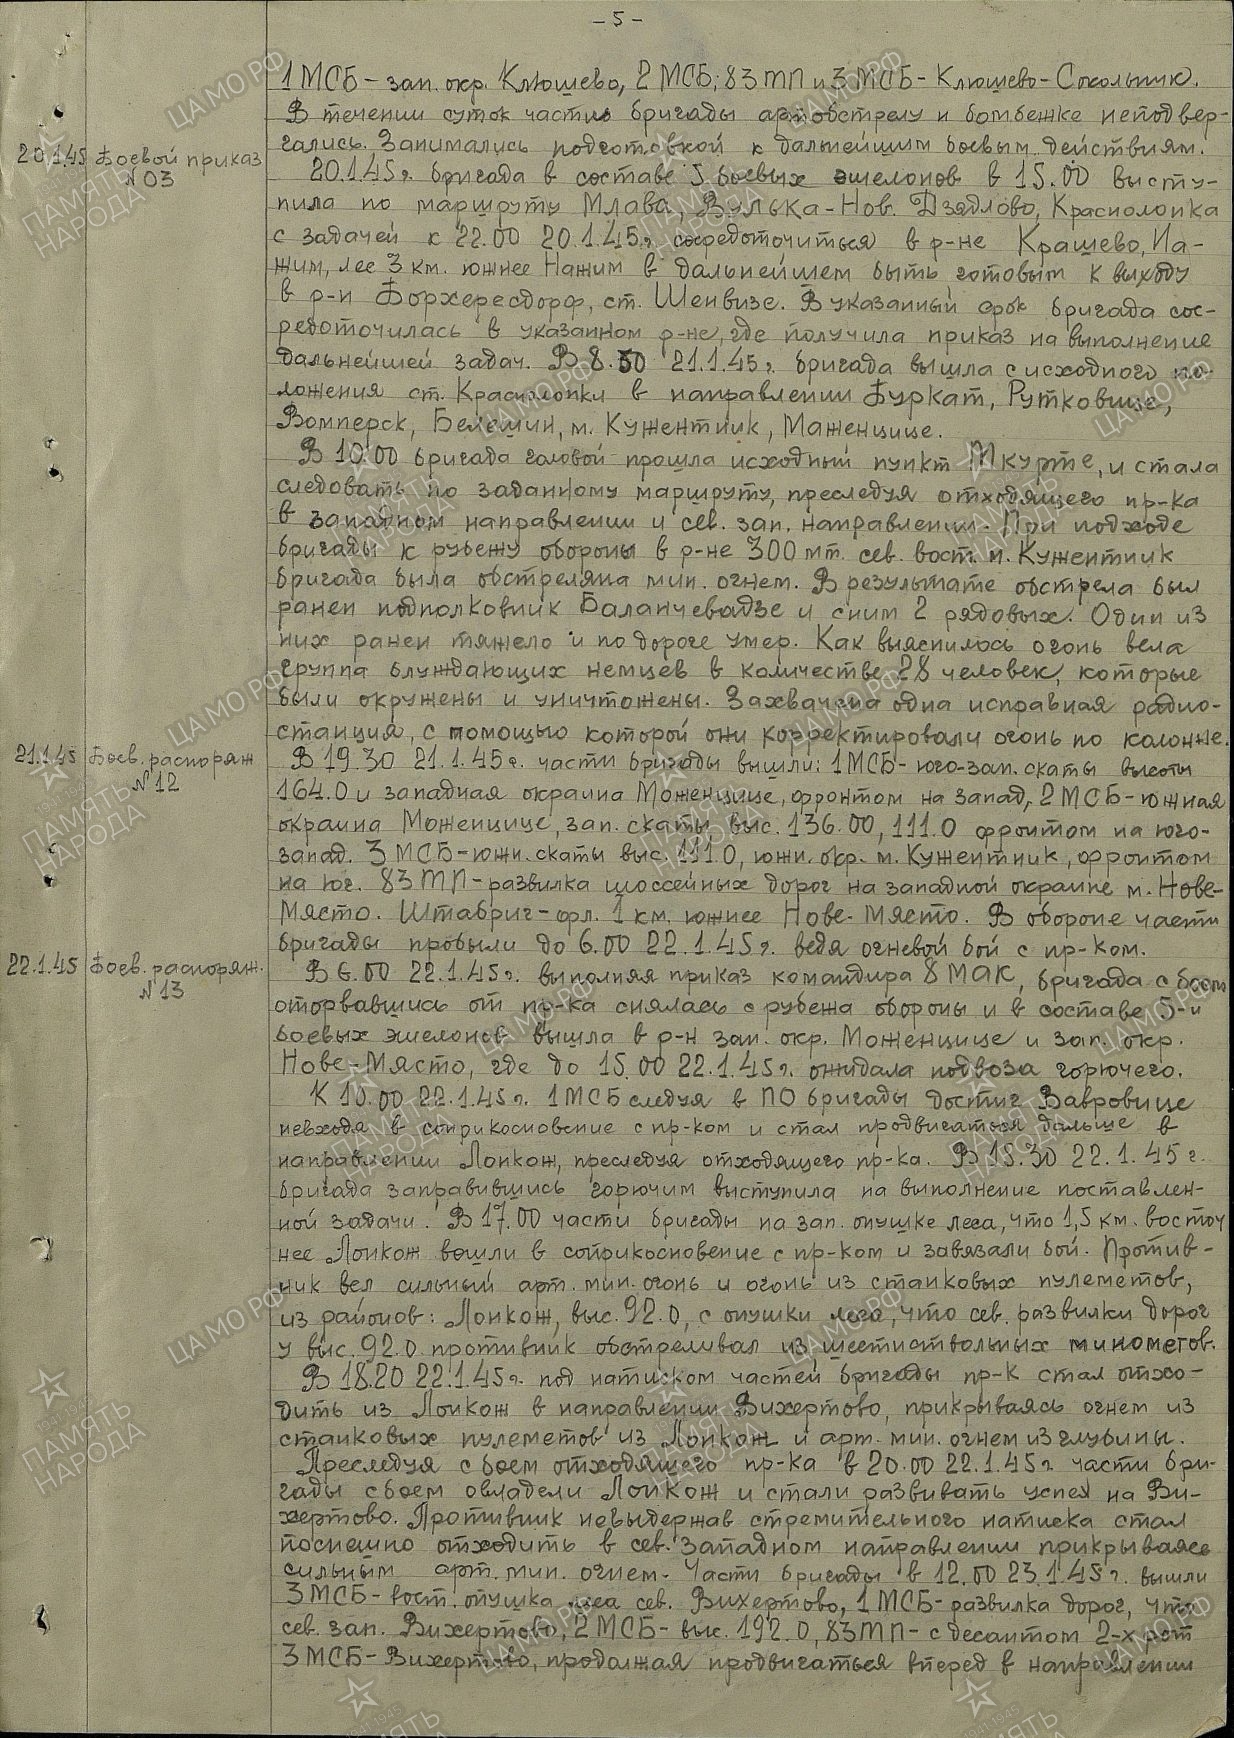 - 5 -
1 МСБ - зап. окр. Клюшево, 2 МСБ; 83 ТП и 3 МСБ - Клюшево - Сокольник.
В течении суток части бригады артобстрелу и бомбежке неподвер-
гались. Занимались подготовкой к дальнейшим боевым действиям.
20.1.45 Боевой приказ
№03
20.1.45 г. бригада в составе 5 боевых эшелонов в 15.00 высту-
пила по маршруту Млава, Вулька-Нов. Дзядлово, Краснолопка
с задачей к 22.00 20.1.45 г. сосредоточиться в р-не Крашево, На-
жим, лес 3 км. южнее Нажим в дальнейшем быть готовым к выходу
в р-н Борхересдорф, ст. Шенвизе. В указанный срок бригада сос-
редоточилась в указанном р-не, где получила приказ на выполнение
дальнейшей задач. В 8.50 21.1.45 г. бригада вышла с исходного по-
ложения ст. Краснолопки в направлении Буркат, Рутковице,
Вомперск, Белешин, м. Кужентник, Маженцице.
В 10.00 бригада головой прошла исходный пункт Ткурте, и стала
следовать по заданному маршруту, преследуя отходящего пр-ка
в западном направлении и сев. зап. направлении. При подходе
бригады к рубежу обороны в р-не 300 мт. сев. вост. м. Кужентник
бригада была обстреляна мин. огнем. В результате обстрела был
ранен подполковник Баланчевадзе и с ним 2 рядовых. Один из
них ранен тяжело и по дороге умер. Как выяснилось огонь вела
группа блуждающих немцев в количестве 28 человек, которые
были окружены и уничтожены. Захвачена одна исправная радио-
станция, с помощью которой они корректировали огонь по колонне.
21.1.45 Боев. распоряж
№12
В 19.30 21.1.45 г. части бригады вышли: 1 МСБ - юго-зап. скаты высоты
164.0 и западная окраина Моженцице, фронтом на запад, 2 МСБ - южная
окраина Моженцице, зап. скаты выс. 136.00, 111.0 фронтом на юго-
запад. 3 МСБ - южн. скаты выс. 111.0, южн. окр. м. Кужентник, фронтом
на юг. 83 ТП - развилка шоссейных дорог на западной окраине м. Нове-
Място. Штабриг - фл. 1 км. южнее Нове-Място. В обороне части
бригады пробыли до 6.00 22.1.45 г. ведя огневой бой с пр-ком.
22.1.45 Боев. распоряж.
№13
В 6.00 22.1.45 г. выполняя приказ командира 8 МАК, бригада с боем
оторвавшись от пр-ка снялась с рубежа обороны и в составе 5-и
боевых эшелонов вышла в р-н зап. окр. Моженцице и зап. окр.
Нове-Място, где до 15.00 22.1.45 г. ожидала подвоза горючего.
К 15.00 22.1.45 г. 1 МСБ следуя в ПО бригады достиг Вавровице
невходя в соприкосновение с пр-ком и стал продвигаться дальше в
направлении Лонкож, преследуя отходящего пр-ка. В 15.30 22.1.45 г.
бригада заправившись горючим выступила на выполнение поставлен-
ной задачи. В 17.00 части бригады на зап. опушке леса, что 1,5 км. восточ
нее Лонкож вошли в соприкосновение с пр-ком и завязали бой. Против-
ник вел сильный арт. мин. огонь и огонь из станковых пулеметов,
из районов: Лонкож, выс. 92.0, с опушки леса, что сев. развилки дорог
у выс. 92.0 противник обстреливал из шестиствольных минометов.
В 18.20 22.1.45 г. под натиском частей бригады пр-к стал отхо-
дить из Лонкож в направлении Вихертово, прикрываясь огнем из
станковых пулеметов из Лонкож и арт. мин. огнем из глубины.
Преследуя с боем отходящего пр-ка в 20.00 22.1.45 г. части бри-
гады с боем овладели Лонкож и стали развивать успех на Ви-
хертово. Противник невыдержав стремительного натиска стал
поспешно отходить в сев. западном направлении прикрываясь
сильным арт. мин. огнем. Части бригады в 12.00 23.1.45 г. вышли
3 МСБ - вост. опушка леса сев. Вихертово, 1 МСБ - развилка дорог, что
сев. зап. Вихертово, 2 МСБ - выс. 192.0, 83 ТП - с десантом 2-х рот
3 МСБ - Вихертово, продолжая продвигаться вперед в направлении
ЦАМО РФ
ПАМЯТЬ
НАРОДА